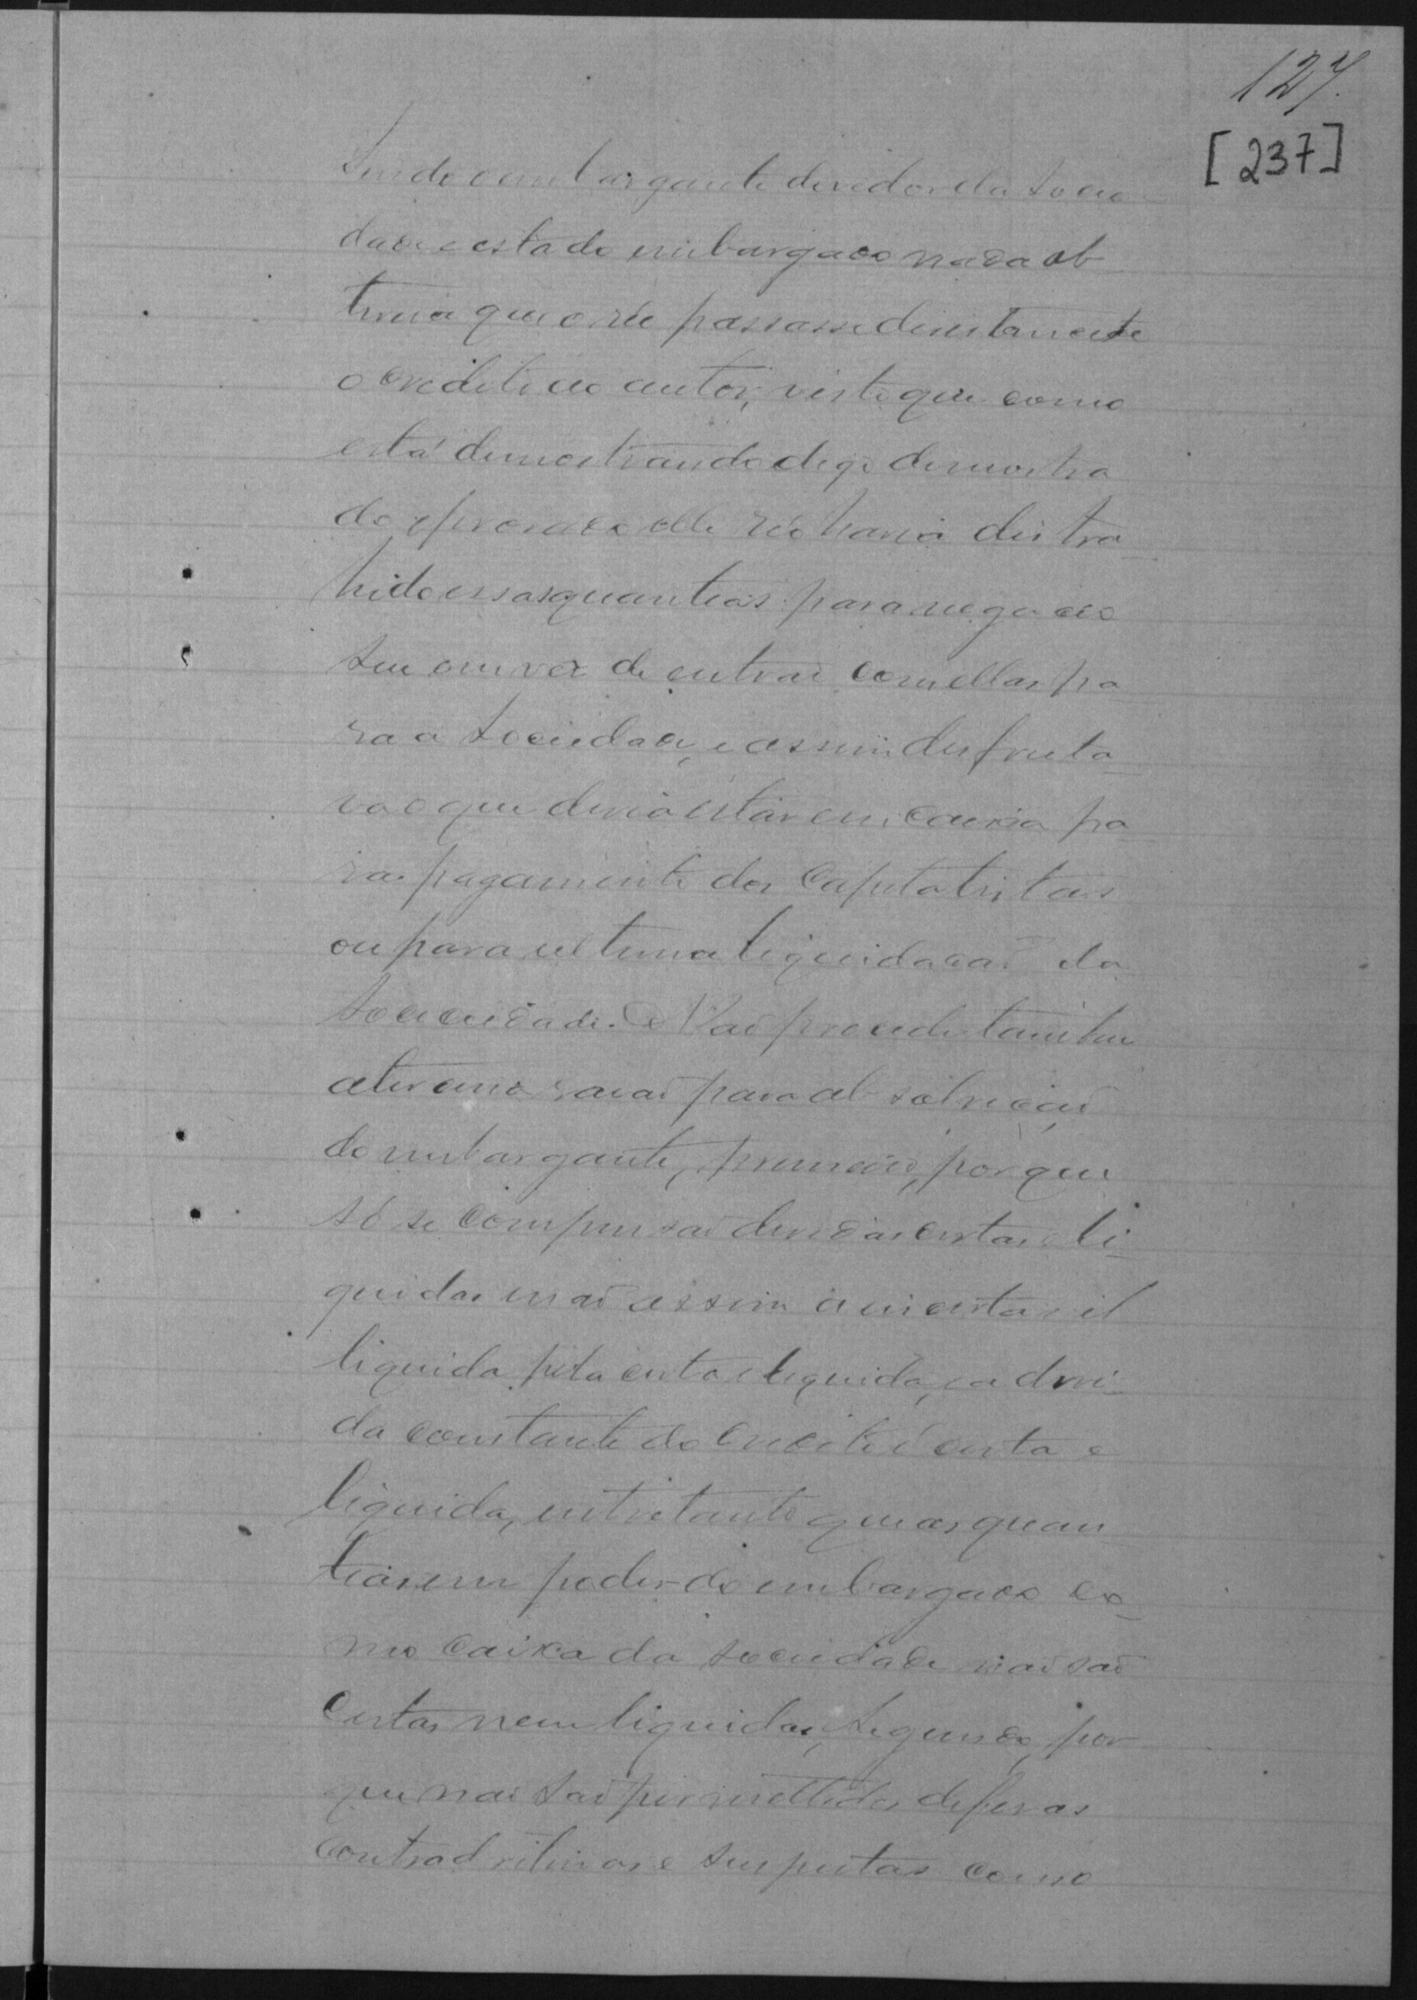 127.
[237]
Sendo o embargante devedor da Socie
dade e estado embargado nada ob
tinha que o réo passasse directamente
o credito ao autor, visto que como
está demonstrando digo demonstra
do e provado elle réo havia distra
hido essas quantias para negocio
seu em vez de entrar com ellas pa
ra a Sociedade, e assim disfructa
va o que devia estar em caixa pa
ra pagamento dos Capitalistas
ou para ultima liquidacaõ da
Sociedade. Naõ procede tambem
a terceira razaõ para absolviçaõ
do embargante, primeiro, porque
só se compensaõ dividas certas e li
quidas e naõ assim a incerta e il
liquida pela certa e liquida, e a divi
da constante do credito é certa e
liquida, entretanto que as quan
tias em poder do embargado co
mo caixa da sociedade naõ saõ
certas nem liquidas, segundo, por
que naõ saõ permettidas defesas
contradictorias e suspeitas como